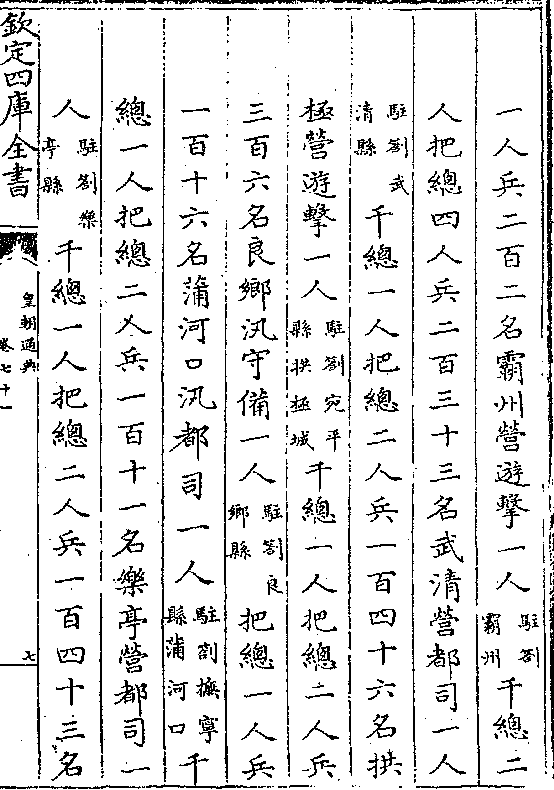 一人兵二百二名霸州營遊擊一人駐劄霸州千總二
人把總四人兵二百三十三名武清營都司一人
駐劄武清縣千總一人把總二人兵一百四十六名拱
極營遊擊一人駐劄宛平縣拱極城千總一人把總二人兵
三百六名良鄉汛守備一人駐劄良鄉縣把總一人兵
一百十六名蒲河口汛都司一人駐劄撫寧縣蒲河口千
總一人把總二人兵一百十一名樂亭營都司一
人駐劄樂亭縣千總一人把總二人兵一百四十三名
欽定四庫全書
皇朝通典
卷七十一
七